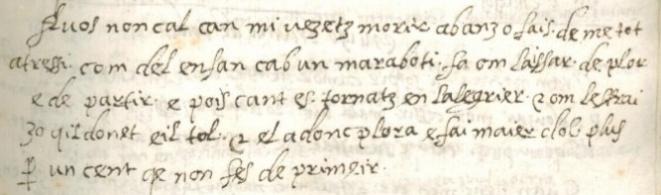 A vos non cal can mi vezetz morir abanzo fais de me tot
atressi com del enfan cab un maraboti fa om laissar de plor
e de partir e pois cant es tornatz en lalegrier & om lestrai
zo qil donet eil tol & el adonc plora e fai maier dol plus
ꝑ un cent qe non fes de primeir.